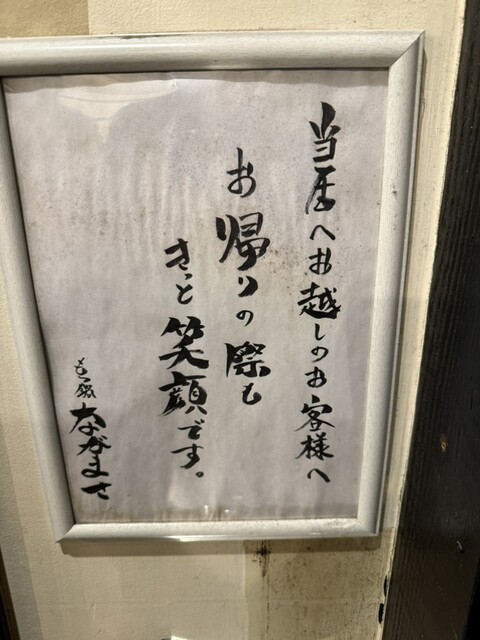 当店へお越しのお客様へ
お帰りの際も
きっと笑顔です。
もつ鍋 ながまさ